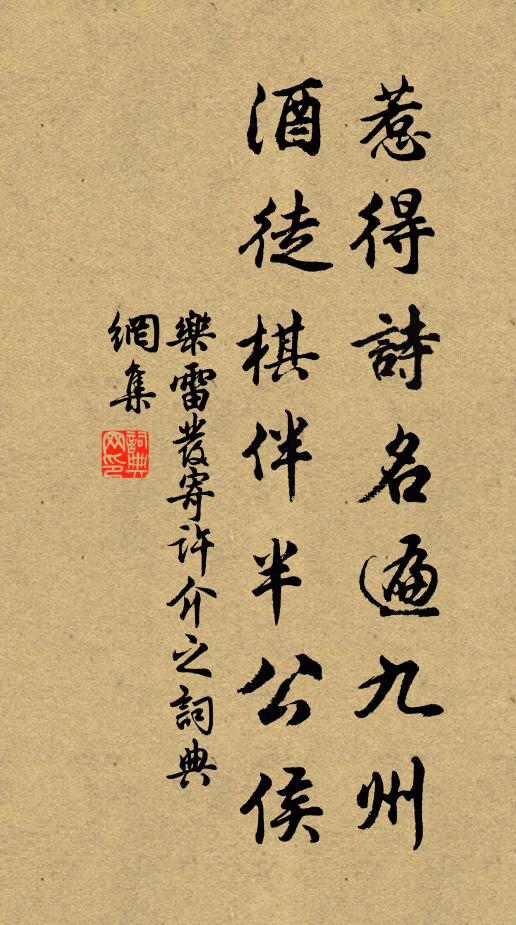 惹得詩名遍九州
酒徒棋伴半公侯
樂雷發寄許介之詞典
網集
詞典網印